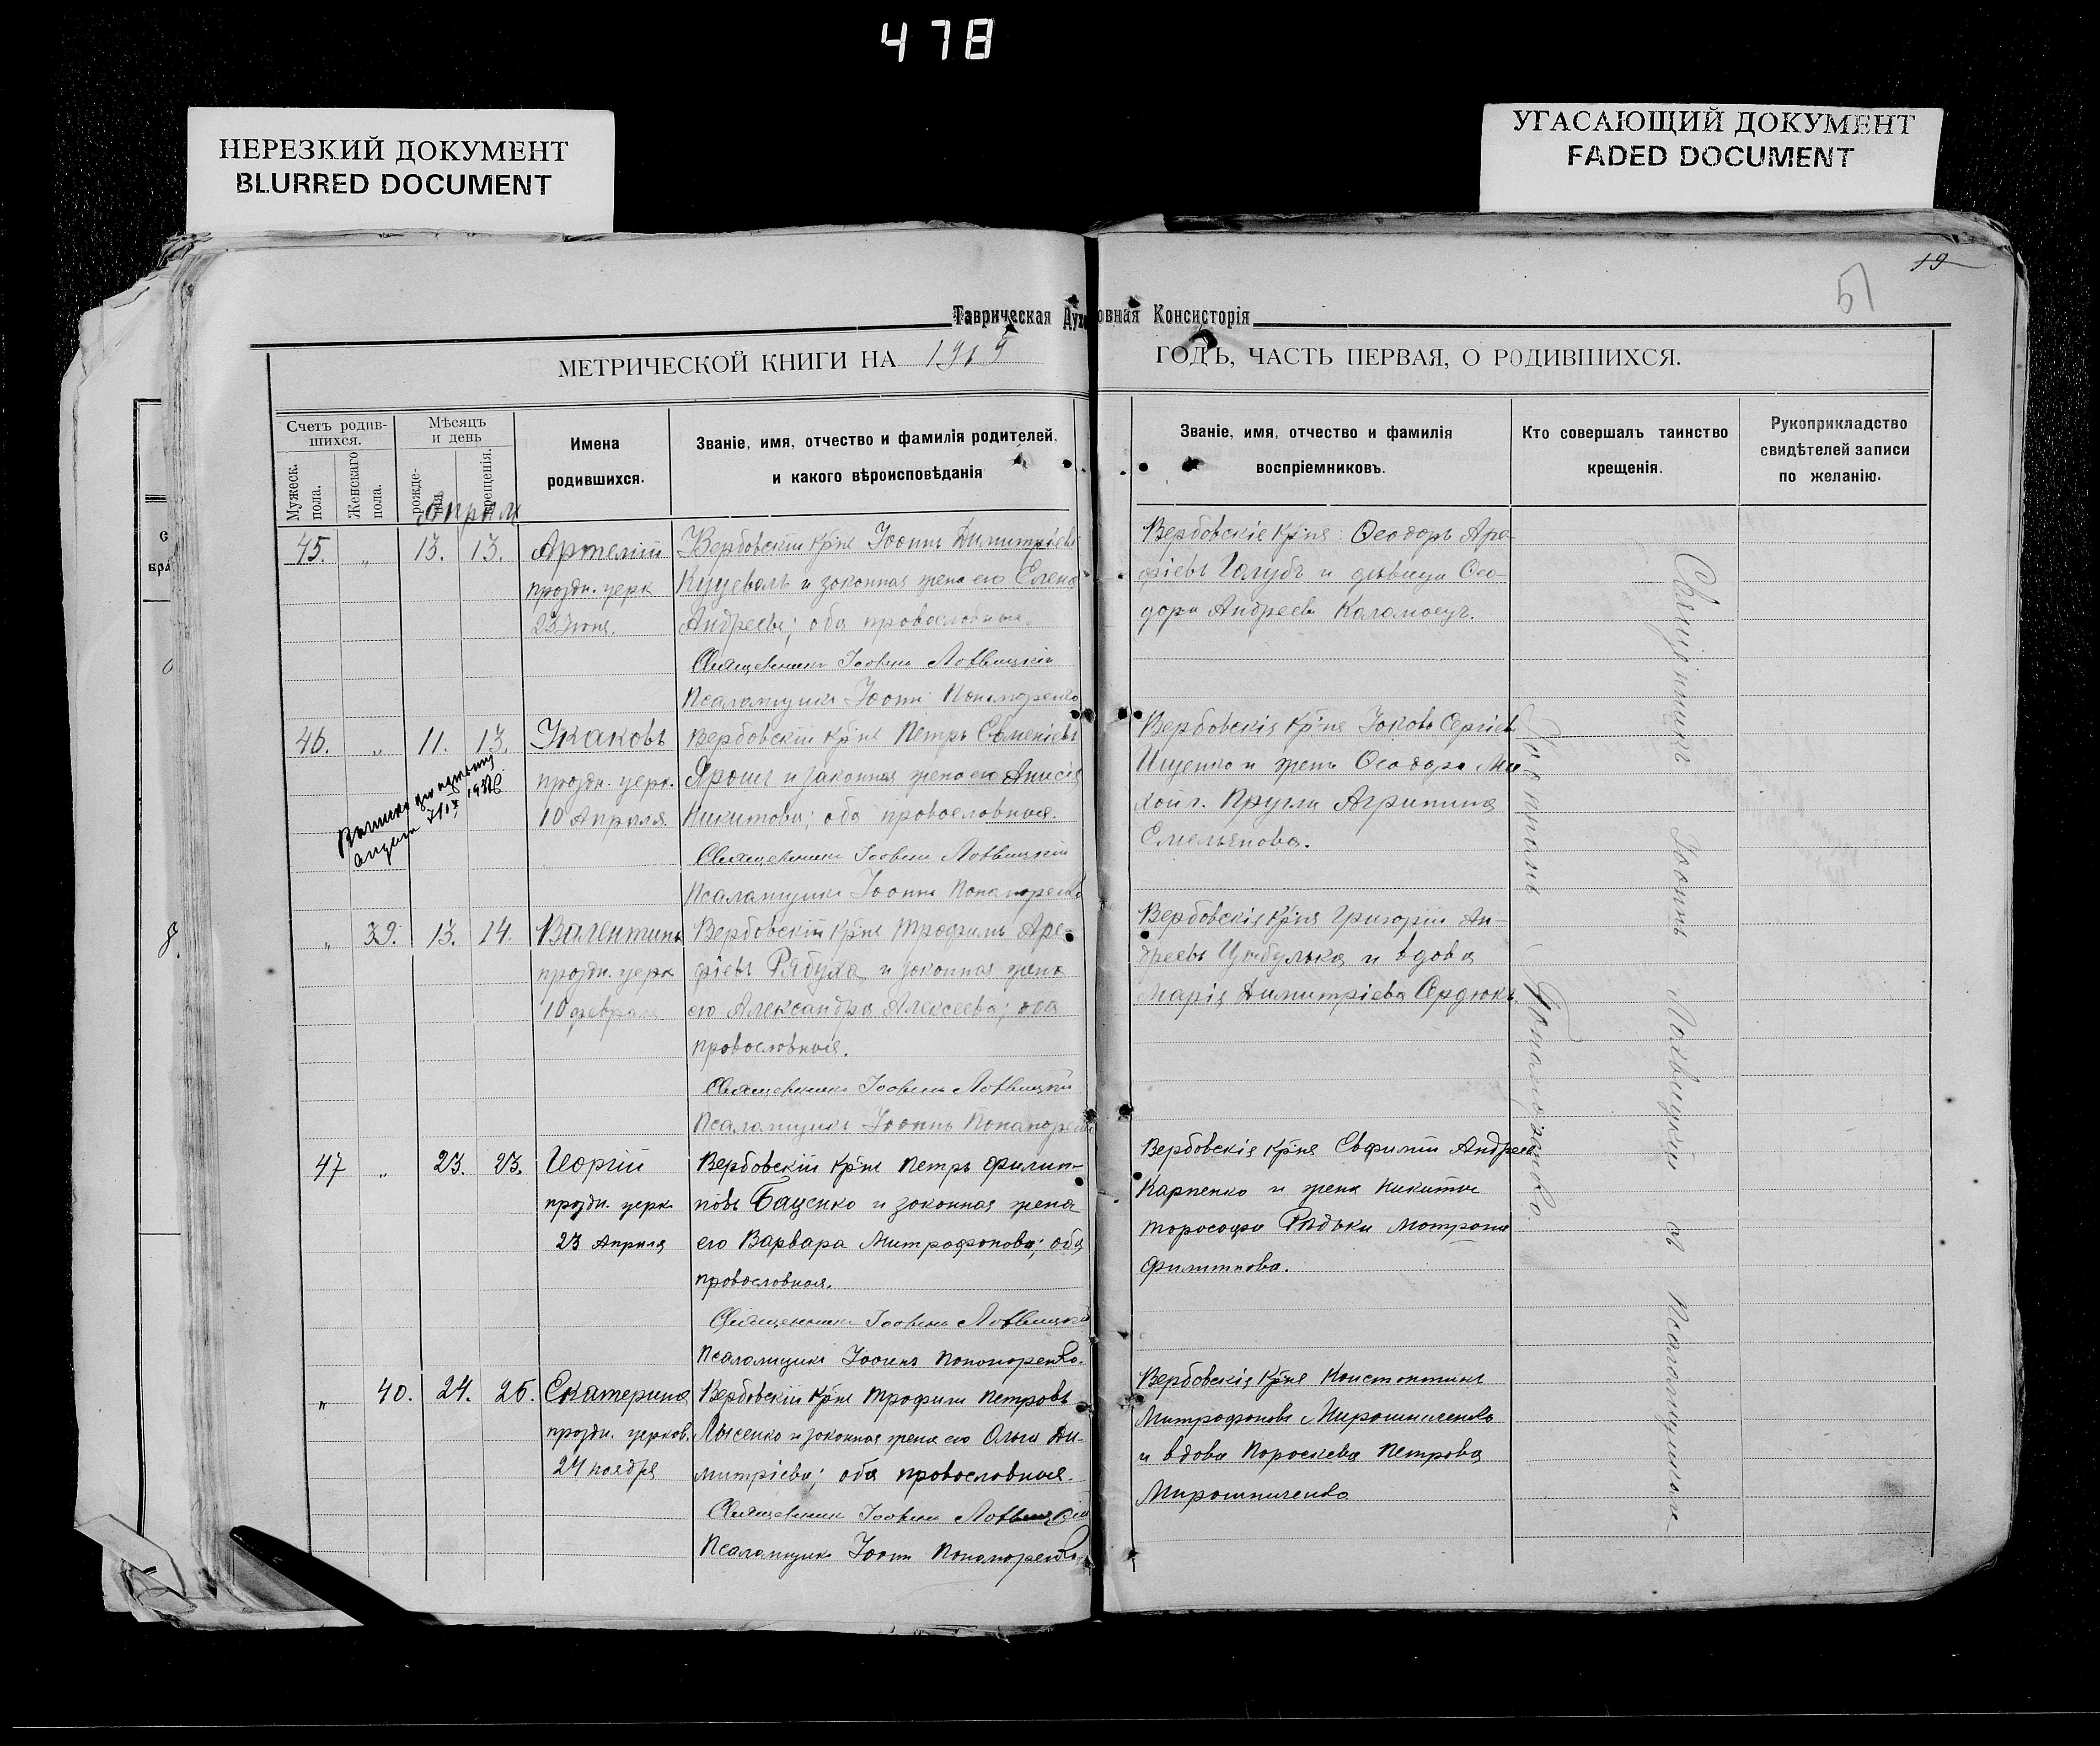 478
НЕРЕЗКИЙ ДОКУМЕНТ
BLURRED DOCUMENT
УГАСАЮЩИЙ ДОКУМЕНТ
FADED DOCUMENT
19
51
Таврическая Духовная Консисторія
МЕТРИЧЕСКОЙ КНИГИ НА 1915 ГОДЪ, ЧАСТЬ ПЕРВАЯ, О РОДИВШИХСЯ.
Счетъ родив-
шихся.
Мужеск. пола.
Женскаго пола.
Мѣсяцъ
и день
рожде-
нія.
крещенія.
Имена
родившихся.
Званіе, имя, отчество и фамилія родителей,
и какого вѣроисповѣданія
Званіе, имя, отчество и фамилія
воспріемниковъ.
Кто совершалъ таинство
крещенія.
Рукоприкладство
свидѣтелей записи
по желанію.
45. " 13. 13. Артемій
праздн. церк
23 Іюня.
Вербовскій кр-не Іоаннъ Димитріевъ
и законная жена его Елена
Андреева; оба православные.
Священникъ Іоаннъ
Псаломщикъ Іоаннъ Пономаренко
Вербовскіе кр-не: Ѳеодоръ Аре-
фіевъ Голубъ и дѣвица Ѳео-
дора Андреева
46. " 11. 13. Іаковъ
праздн. церк.
10 Апрѣля.
Вербовскій кр-не Петръ Евменіевъ
Ярошъ и законная жена его Анисія
Никитова; оба православные.
Священникъ Іоаннъ
Псаломщикъ Іоаннъ Пономаренко
Вербовскія кр-не Іаковъ Сергіевъ
Ищенко и жена Ѳеодора Ми-
Агрипина
Емельянова.
" 39. 13. 14. Валентина
праздн. церк
10 февраля
Вербовскій кр-не Трофимъ Аре-
фіевъ Рябуха и законная жена
его Александра Алексеева; оба
православные.
Священникъ Іоаннъ
Псаломщикъ Іоаннъ Пономаренко
Вербовскія кр-не Григорій Ан-
дреевъ Цыбулька и вдова
Марія Димитріева Сердюкъ.
47 " 23. 23. Георгій
праздн. церк.
23 Апрѣля
Вербовскій кр-не Петръ Филип-
повъ Баценко и законная жена
его Варвара Митрофанова; оба
православные.
Священникъ Іоаннъ
Псаломщикъ Іоаннъ Пономаренко.
Вербовскія кр-не Евфимій Андреевъ
Карпенко и жена Никиты
Рядьки Матрона
Филиппова.
" 40. 24. 26. Екатерина
праздн. церков.
24 ноября
Вербовскій кр-не Трофимъ Петровъ
Лысенко и законная жена его Ольга Ди-
митріева; оба православные.
Священникъ Іоаннъ
Псаломщикъ Іоаннъ Пономаренко
Вербовскія кр-не Константинъ
Митрофановъ Мирошниченко
и вдова Параскева Петрова
Мирошниченко
Священникъ Іоаннъ съ Псаломщикомъ
Іоанномъ Пономаренко.